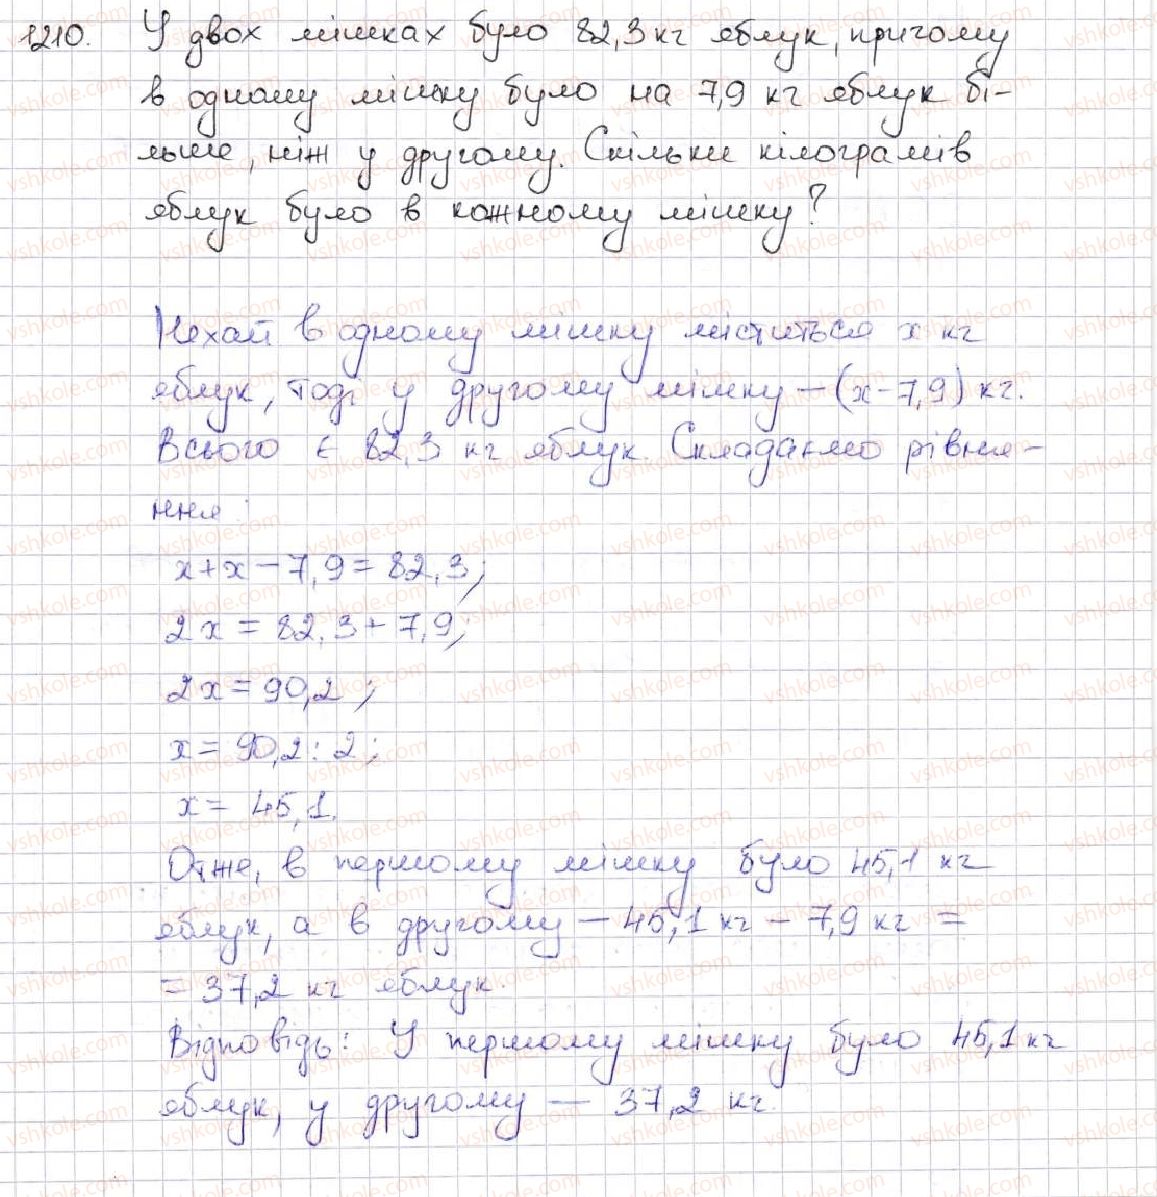 1210. У двох мішках було 82,3 кг яблук, причому
в одному мішку було на 7,9 кг яблук бі-
льше, ніж у другому. Скільки кілограмів
яблук було в кожному мішку?
Нехай в одному мішку міститься x кг
яблук, тоді у другому мішку – (x-7,9) кг.
Всього є 82,3 кг яблук. Складаємо рівнян-
ння:
x+x-7,9=82,3;
2x=82,3+7,9;
2x=90,2;
x=90,2:2;
x=45,1.
Отже, в першому мішку було 45,1 кг
яблук, а в другому – 45,1 кг - 7,9 кг =
= 37,2 кг яблук.
Відповідь: У першому мішку було 45,1 кг
яблук, у другому – 37,2 кг.